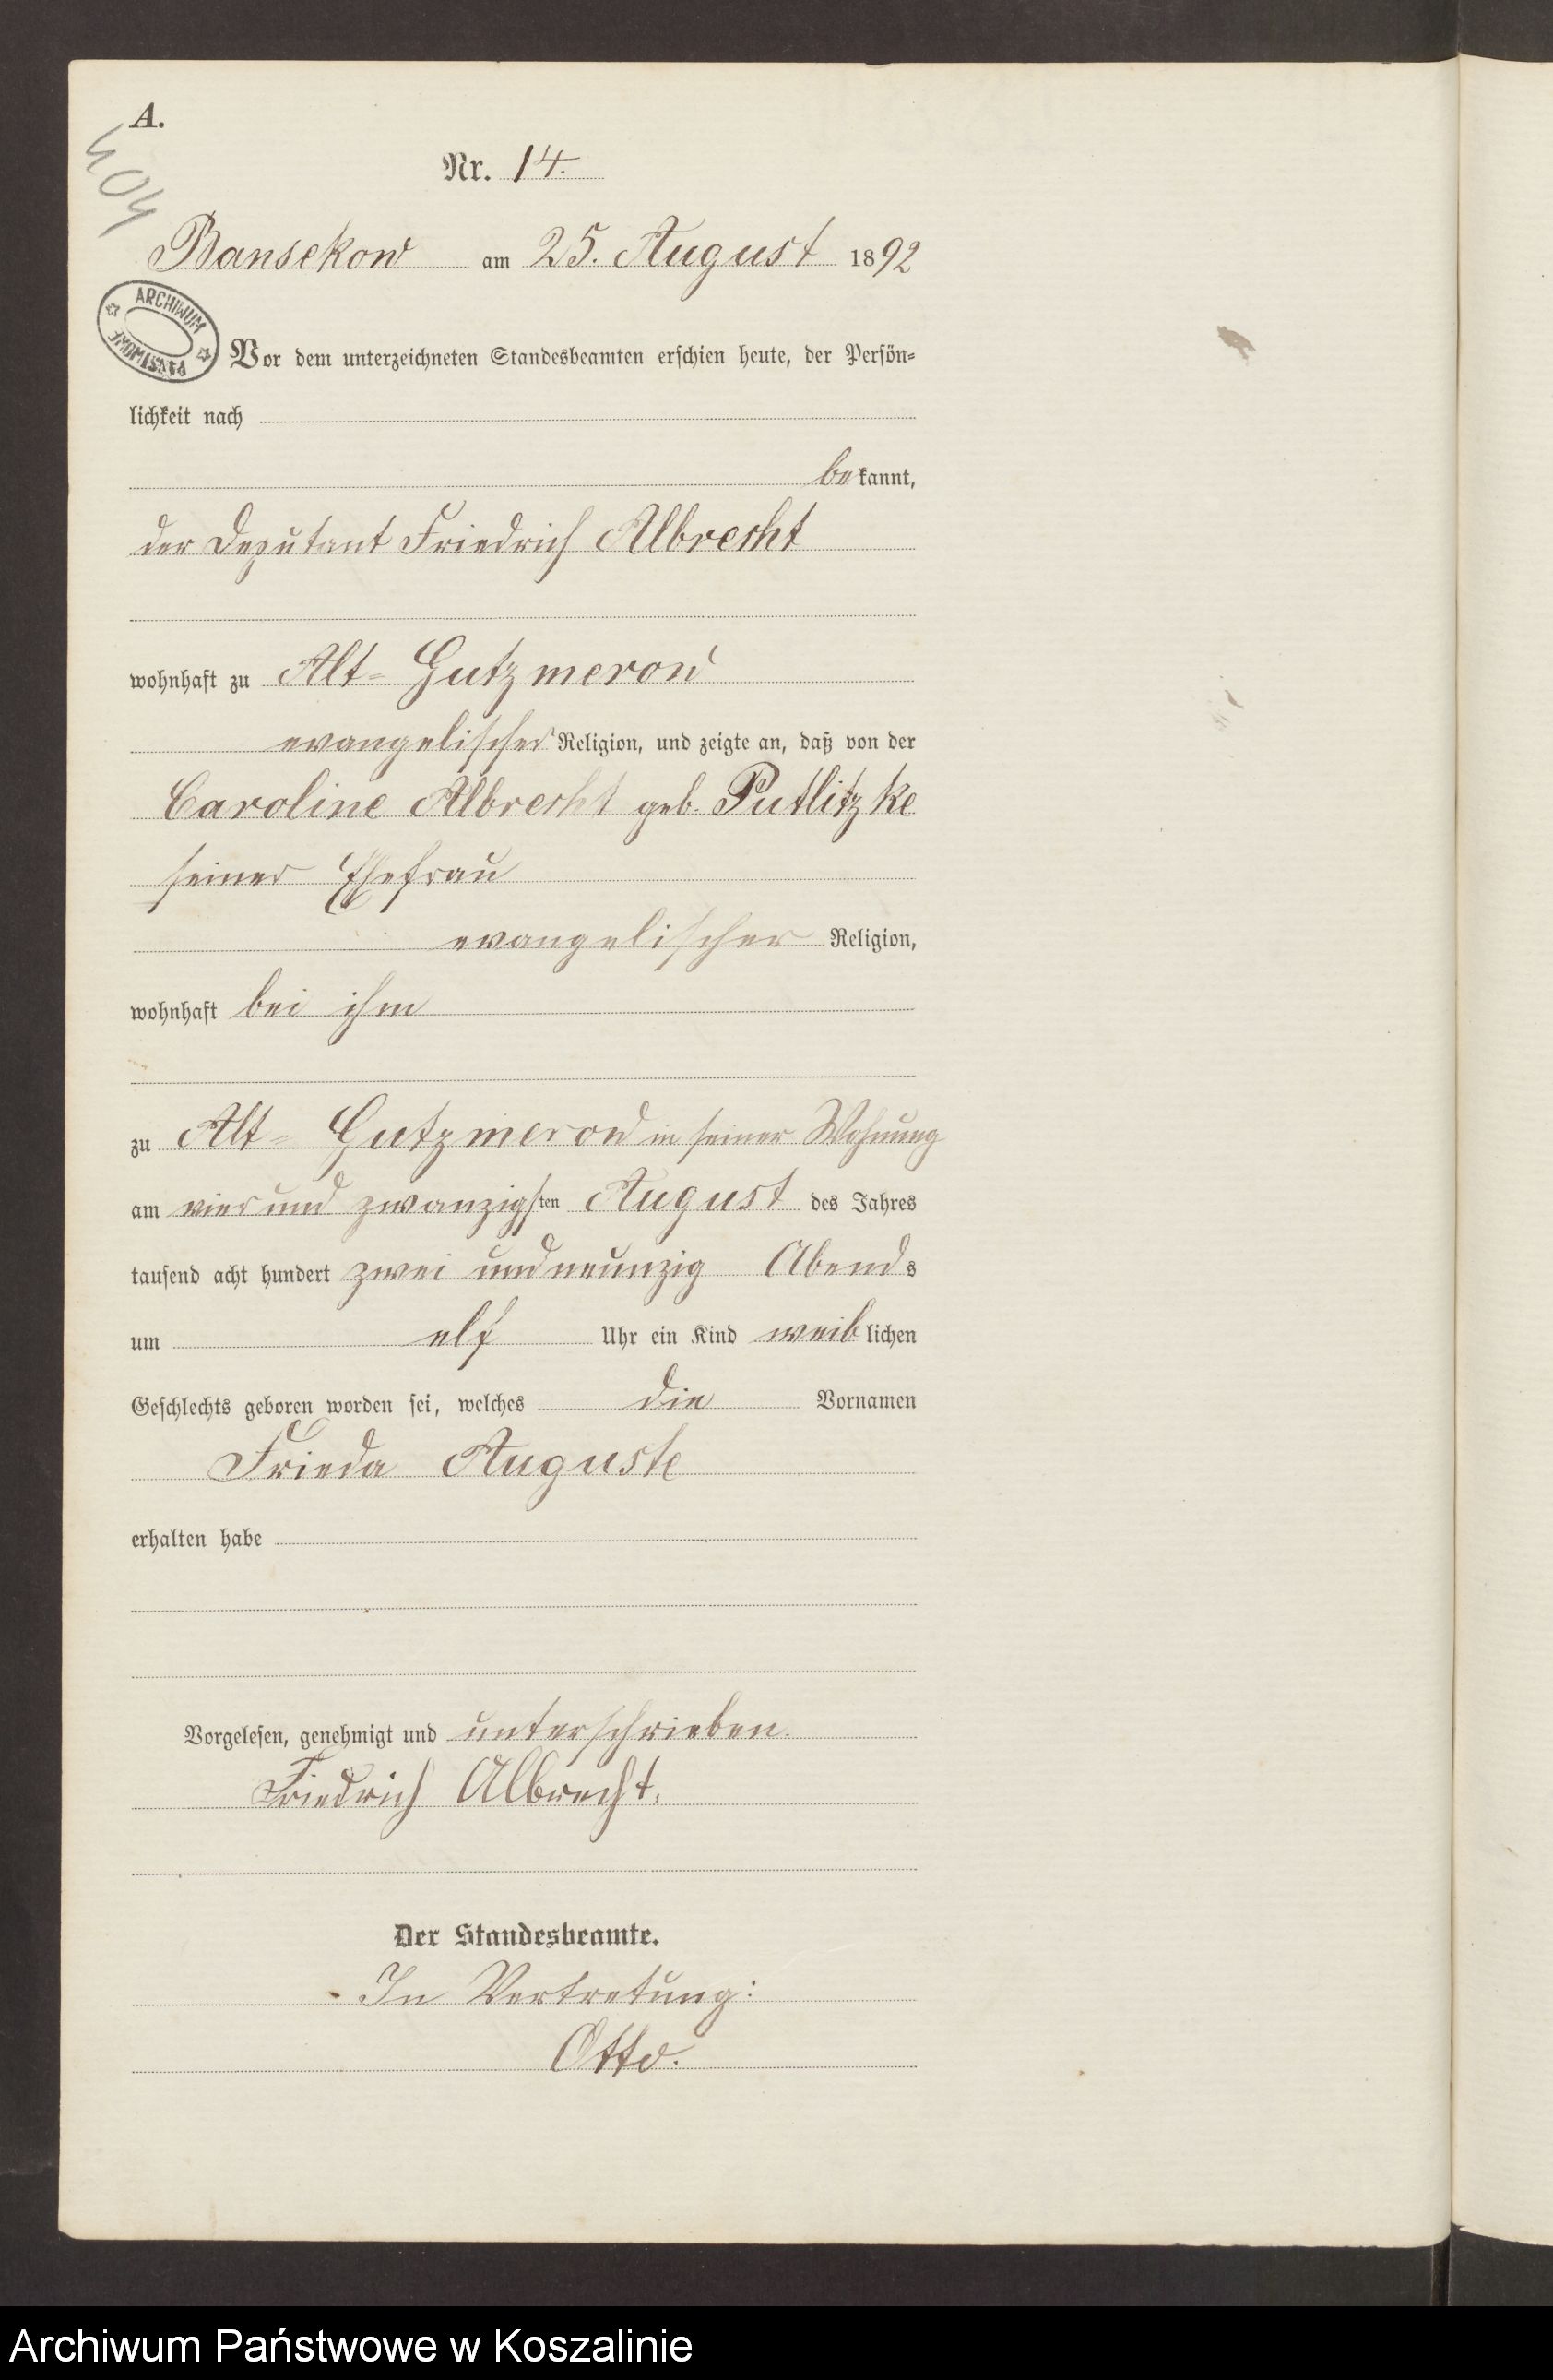 A.
404
Nr. 14.
Bansekow am 25. August 1892
ARCHIWUM PAŃSTWOWE
Vor dem unterzeichneten Standesbeamten erschien heute, der Persön-
lichkeit nach
bekannt,
der Deputant Friedrich Albrecht
wohnhaft zu Alt-Gutzmerow
evangelischer Religion, und zeigte an, daß von der
Caroline Albrecht geb. Putlitzke
seiner Ehefrau
evangelischer Religion,
wohnhaft bei ihm
zu Alt-Gutzmerow in seiner Wohnung
am vier und zwanzigsten August des Jahres
tausend acht hundert zwei und neunzig Abends
um elf Uhr ein Kind weiblichen
Geschlechts geboren worden sei, welches die Vornamen
Frieda Auguste
erhalten habe
Vorgelesen, genehmigt und unterschrieben.
Friedrich Albrecht.
Der Standesbeamte.
In Vertretung:
Otto.
Archiwum Państwowe w Koszalinie